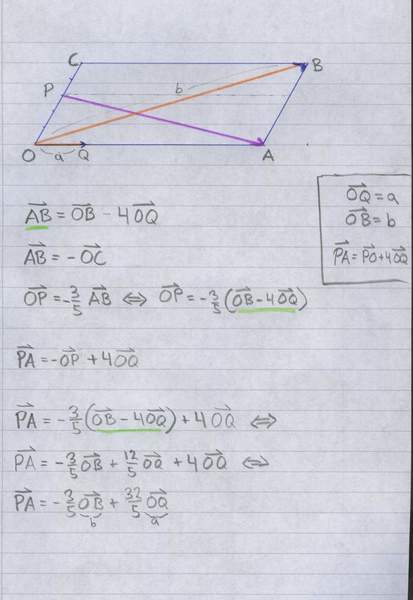 C
B
P
b
O
a
Q
A
OQ⃗ = a
OB⃗ = b
PA⃗ = PO⃗ + 4OQ⃗
AB⃗ = OB⃗ - 4OQ⃗
AB⃗ = -OC⃗
OP⃗ = -3/5 AB⃗ ⇔ OP⃗ = -3/5 (OB⃗ - 4OQ⃗)
PA⃗ = -OP⃗ + 4OQ⃗
PA⃗ = -3/5 (OB⃗ - 4OQ⃗) + 4OQ⃗ ⇔
PA⃗ = -3/5 OB⃗ + 12/5 OQ⃗ + 4OQ⃗ ⇔
PA⃗ = -3/5 OB⃗ + 32/5 OQ⃗
b a